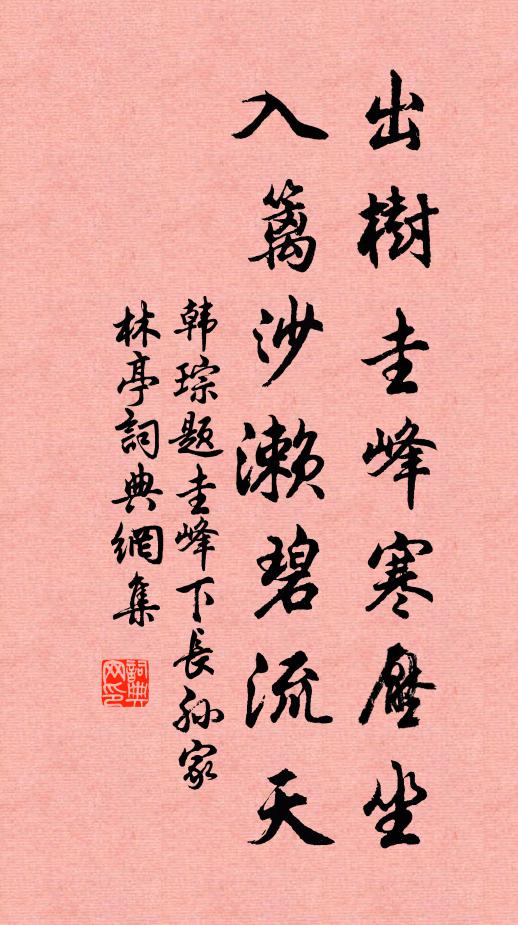 出樹圭峰寒壓坐
入籬沙瀨碧流天
韩琮题圭峰下長孫家
林亭詞典網集
詞典
网印